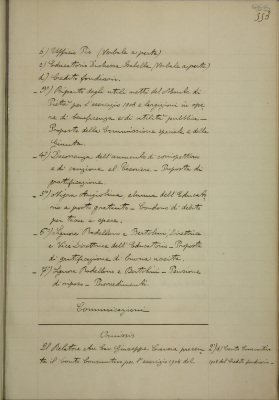 b) Ufficio Pio (Verbale a parte)
c) Educatorio Duchessa Isabella (Verbale a parte)
d) Credito fondiario.
3°) Riparto degli utili netti del Monte di
Pietà per l'esercizio 1904 e largizioni in ope-
re di beneficenza e di utilità pubblica -
Proposte della Commissione speciale e della
Giunta.
4°) Decorrenza dell'aumento di
e di cauzione al Tesoriere - Proposta di
gratificazione.
5°) Angiolina alunna dell'Educato-
rio a posto gratuito - Condono di debito
per tasse e spese.
6°) Signore e Bertolini, Direttrice
e Vice Direttrice dell'Educatorio - Proposta
di gratificazione di buona uscita.
7°) Signore e Bertolini - Pensione
di riposo - Provvedimenti
Comunicazioni
Omissis
Il Relatore Avv. Cav. Giuseppe presen-
ta il Conto Consuntivo per l'esercizio 1904 del
2°) d) Conto Consuntivo
1904 del Credito fondiario -